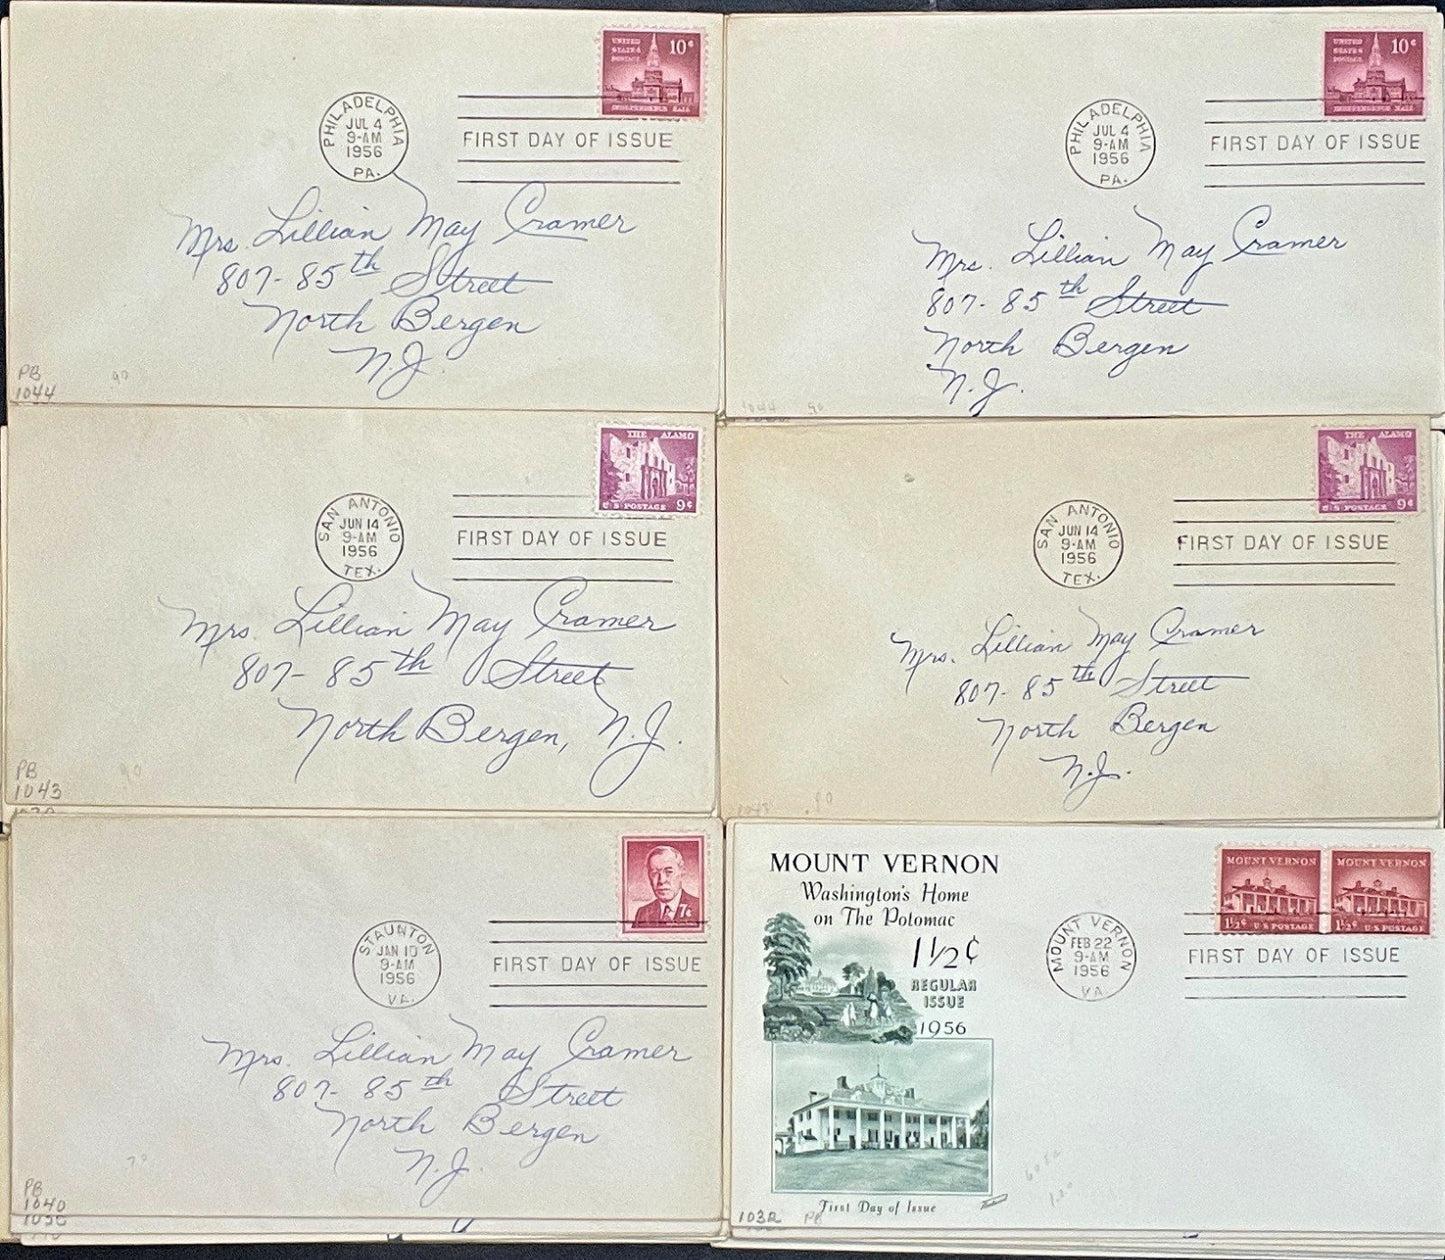 UNITED
STATES
POSTAGE
10¢
INDEPENDENCE HALL
PHILADELPHIA
JUL 4
9-AM
1956
PA.
FIRST DAY OF ISSUE
Mrs. Lillian May Cramer
807-85th Street
North Bergen
N.J.
PB
1044
90
UNITED
STATES
POSTAGE
10¢
INDEPENDENCE HALL
PHILADELPHIA
JUL 4
9-AM
1956
PA.
FIRST DAY OF ISSUE
Mrs. Lillian May Cramer
807-85th Street
North Bergen
N.J.
1044 90
THE ALAMO
U S POSTAGE 9¢
SAN ANTONIO
JUN 14
9-AM
1956
TEX.
FIRST DAY OF ISSUE
Mrs. Lillian May Cramer
807-85th Street
North Bergen, N.J.
PB
1043
90
THE ALAMO
U S POSTAGE 9¢
SAN ANTONIO
JUN 14
9-AM
1956
TEX.
FIRST DAY OF ISSUE
Mrs. Lillian May Cramer
807-85th Street
North Bergen
N.J.
.90
7¢
STAUNTON
JAN 10
9-AM
1956
VA.
FIRST DAY OF ISSUE
Mrs. Lillian May Cramer
807-85th Street
North Bergen
N.J.
70
PB
1040
MOUNT VERNON
Washington's Home
on The Potomac
1 1/2¢
REGULAR
ISSUE
1956
First Day of Issue
MOUNT VERNON
1½¢ U S POSTAGE
MOUNT VERNON
1½¢ U S POSTAGE
MOUNT VERNON
FEB 22
9-AM
1956
VA.
FIRST DAY OF ISSUE
1032 PB